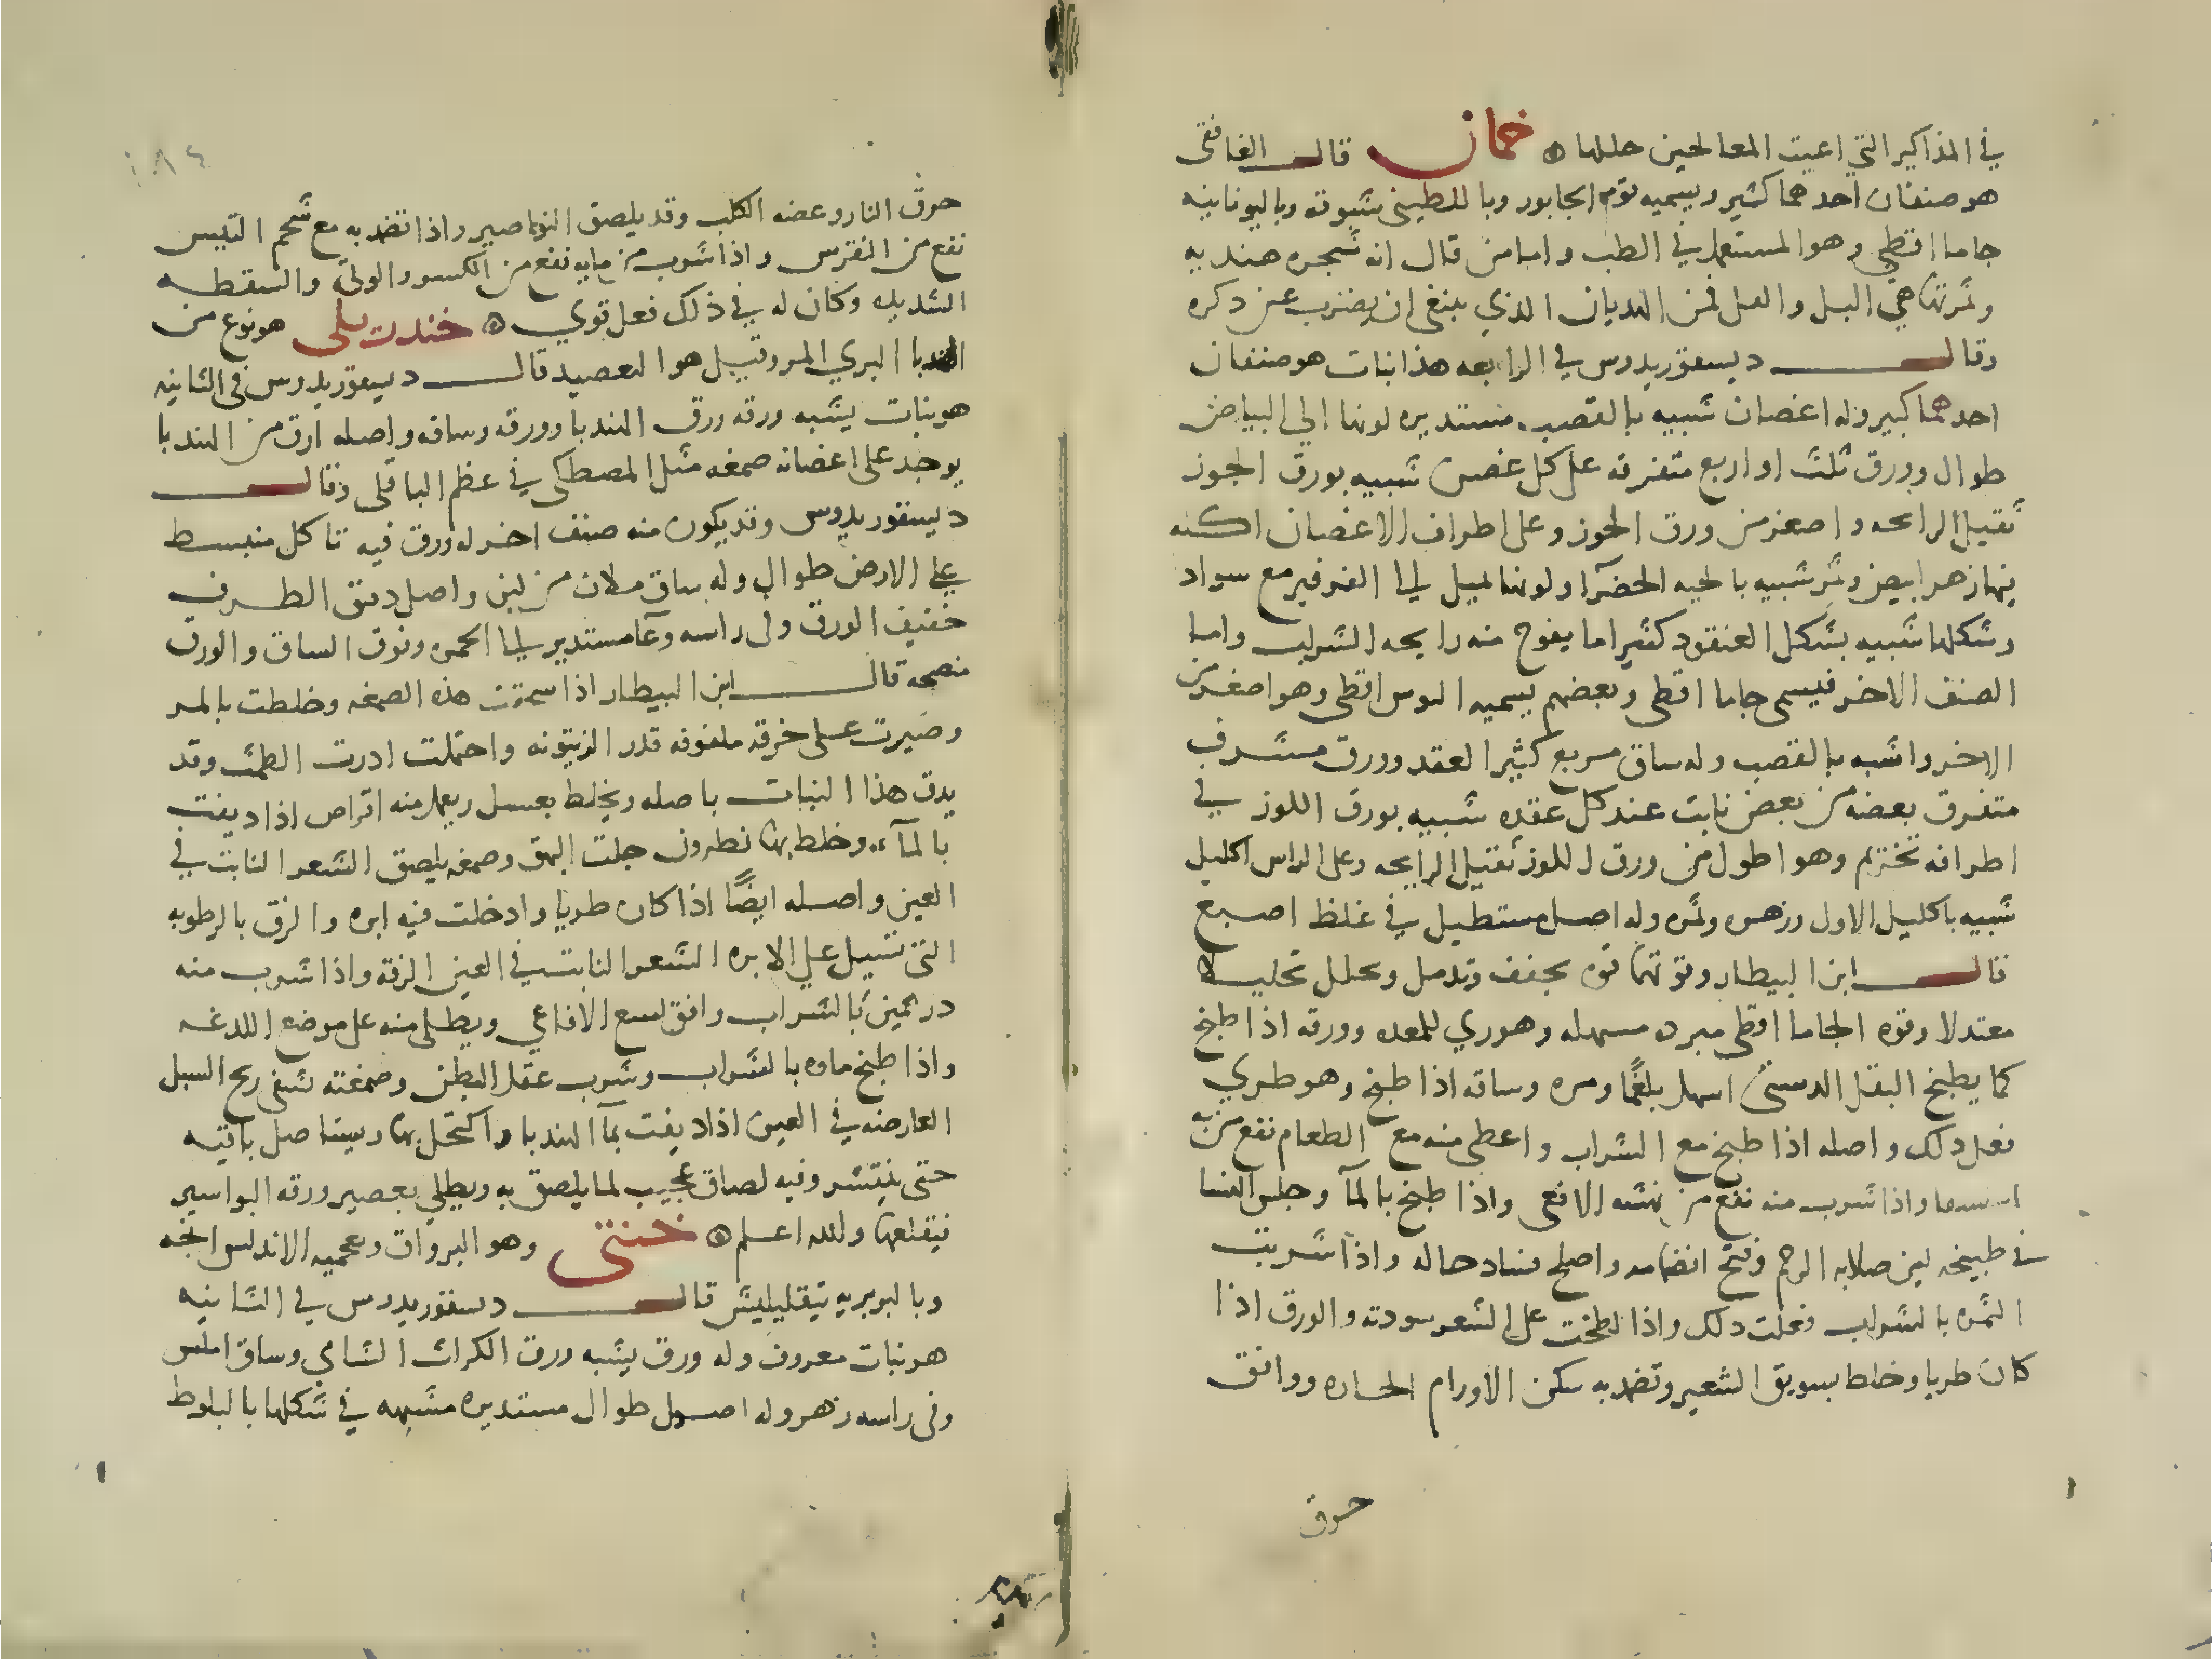 في المذاكير التي اعيت المعالجين حللها ۞ خمان قال الغافقي
هو صنفان احدهما كثير ويسميه قوم الجابور وباللطيني شبوقه وباليونانيه
جاما اقطي وهو المستعمل في الطب واما من قال ان شجره هنديه
وثمرتها هي البل والفل فمن الهديان الذي ينبغي ان يضرب عن ذكره
وقال ديسقوريدوس في الرابعه هذا نبات هو صنفان
احدهما كبير وله اغصان شبيه بالقصب مستديره لونها الي البياض
طوال وورق ثلث او اربع متفرقه على كل غصن شبيه بورق الجوز
ثقيل الرايحه واصغر من ورق الجوز وعلى اطراف الاغصان اكله
فيها زهر ابيض وثمر شبيه بالحبه الخضرا ولونها يميل الي الفرفير مع سواد
وشكلها شبيه بشكل العنقود كثيرا ما يفوح منه رايحه الشراب واما
الصنف الاخر فيسمى جاما اقطى وبعضهم يسميه الوس اقطى وهو اصغر من
الاخر واشبه بالقصب وله ساق مربع كثير العقد وورق مشرف
متفرق بعضه من بعض نابت عند كل عقده شبيه بورق اللوز في
اطرافه تخزيم وهو اطول من ورق اللوز ثقيل الرايحه وعلى الراس اكليل
شبيه باكليل الاول وزهره وثمره وله اصل مستطيل في غلظ اصبع
قال ابن البيطار وقوتهما قوه تجفف وتدمل وتحلل تحليلا
معتدلا وقوه الجاما اقطى مبرده مسهله وهو ردي للمعده وورقه اذا طبخ
كما يطبخ البقل الدستي اسهل بلغمًا ومره وساقه اذا طبخ وهو طري
فعل ذلك واصله اذا طبخ مع الشراب واعطى منه مع الطعام نفع من به
استسقا واذا شرب منه نفع من نهشه الافعى واذا طبخ بالمآ وجلس النسا
في طبيخه لين صلابه الرحم وفتح انضمامه واصلح فساد حاله واذا شربت
الثمره بالشراب فعلت ذلك واذا لطخت على الشعر سودته والورق اذا
كان طريا وخلط بسويق الشعير وتضمد به سكن الاورام الحاره ووافق
حرق
١٨٤
حرق النار وعضه الكلب وقد يلصق النواصير واذا تضمد به مع شحم التيس
نفع من النقرس واذا شرب من مايه نفع من الكسر والوثي والسقطه
الشديده وكان له في ذلك فعل قوي ۞ خندريلي هو نوع من
الهندبا البري المر وقيل هو اليعضيد قال ديسقوريدوس في الثانيه
هو نبات يشبه ورقه ورق الهندبا وورقه وساقه واصله ارق من الهندبا
يوجد على اغصانه صمغه مثل المصطكى في عظم الباقلى وقال
ديسقوريدوس وقد يكون منه صنف اخر له ورق فيه تاكل منبسط
على الارض طوال وله ساق ملان من لبن واصل دقيق الطرف
خفيف الورق وفى راسه وعآ مستدير الي الحمره وفوق الساق والورق
منصحه قال ابن البيطار اذا سحقت هذه الصمغه وخلطت بالمر
وصيرت على خرقه ملفوفه قدر الزيتونه واحتملت ادرت الطمث وقد
يدق هذا النبات باصله ويخلط بعسل ويعمل منه اقراص اذا ديفت
بالمآء وخلط بها نطرون جلت البهق وصمغه يلصق الشعر النابت في
العين واصله ايضًا اذا كان طريا وادخلت فيه ابره والزق بالرطوبه
التي تسيل على الابره الشعر النابت في العين الزقه واذا شرب منه
درخمين بالشراب وافق لسع الافاعي ويطلى منه على موضع اللدغه
واذا طبخ ماوه بالشراب وشرب عقل البطن وصمغته تشفى ريح السبل
العارضه في العين اذا ديفت بمآ الهندبا واكتحل بها ويستاصل باقيه
حتى ينقشر وفيه لصاق عجيب لما يلصق به ويطلي بعصير ورقه البواسير
فيقلعها والله اعلم ۞ خنثى وهو البرواق وبعجميه الاندلس ابجه
وبالبربريه تيقليلش قال دسقوريدوس في الثانيه
هو نبات معروف وله ورق يشبه ورق الكراث الشامي وساق املس
وفى راسه زهر وله اصول طوال مستديره مشبهه في شكلها بالبلوط